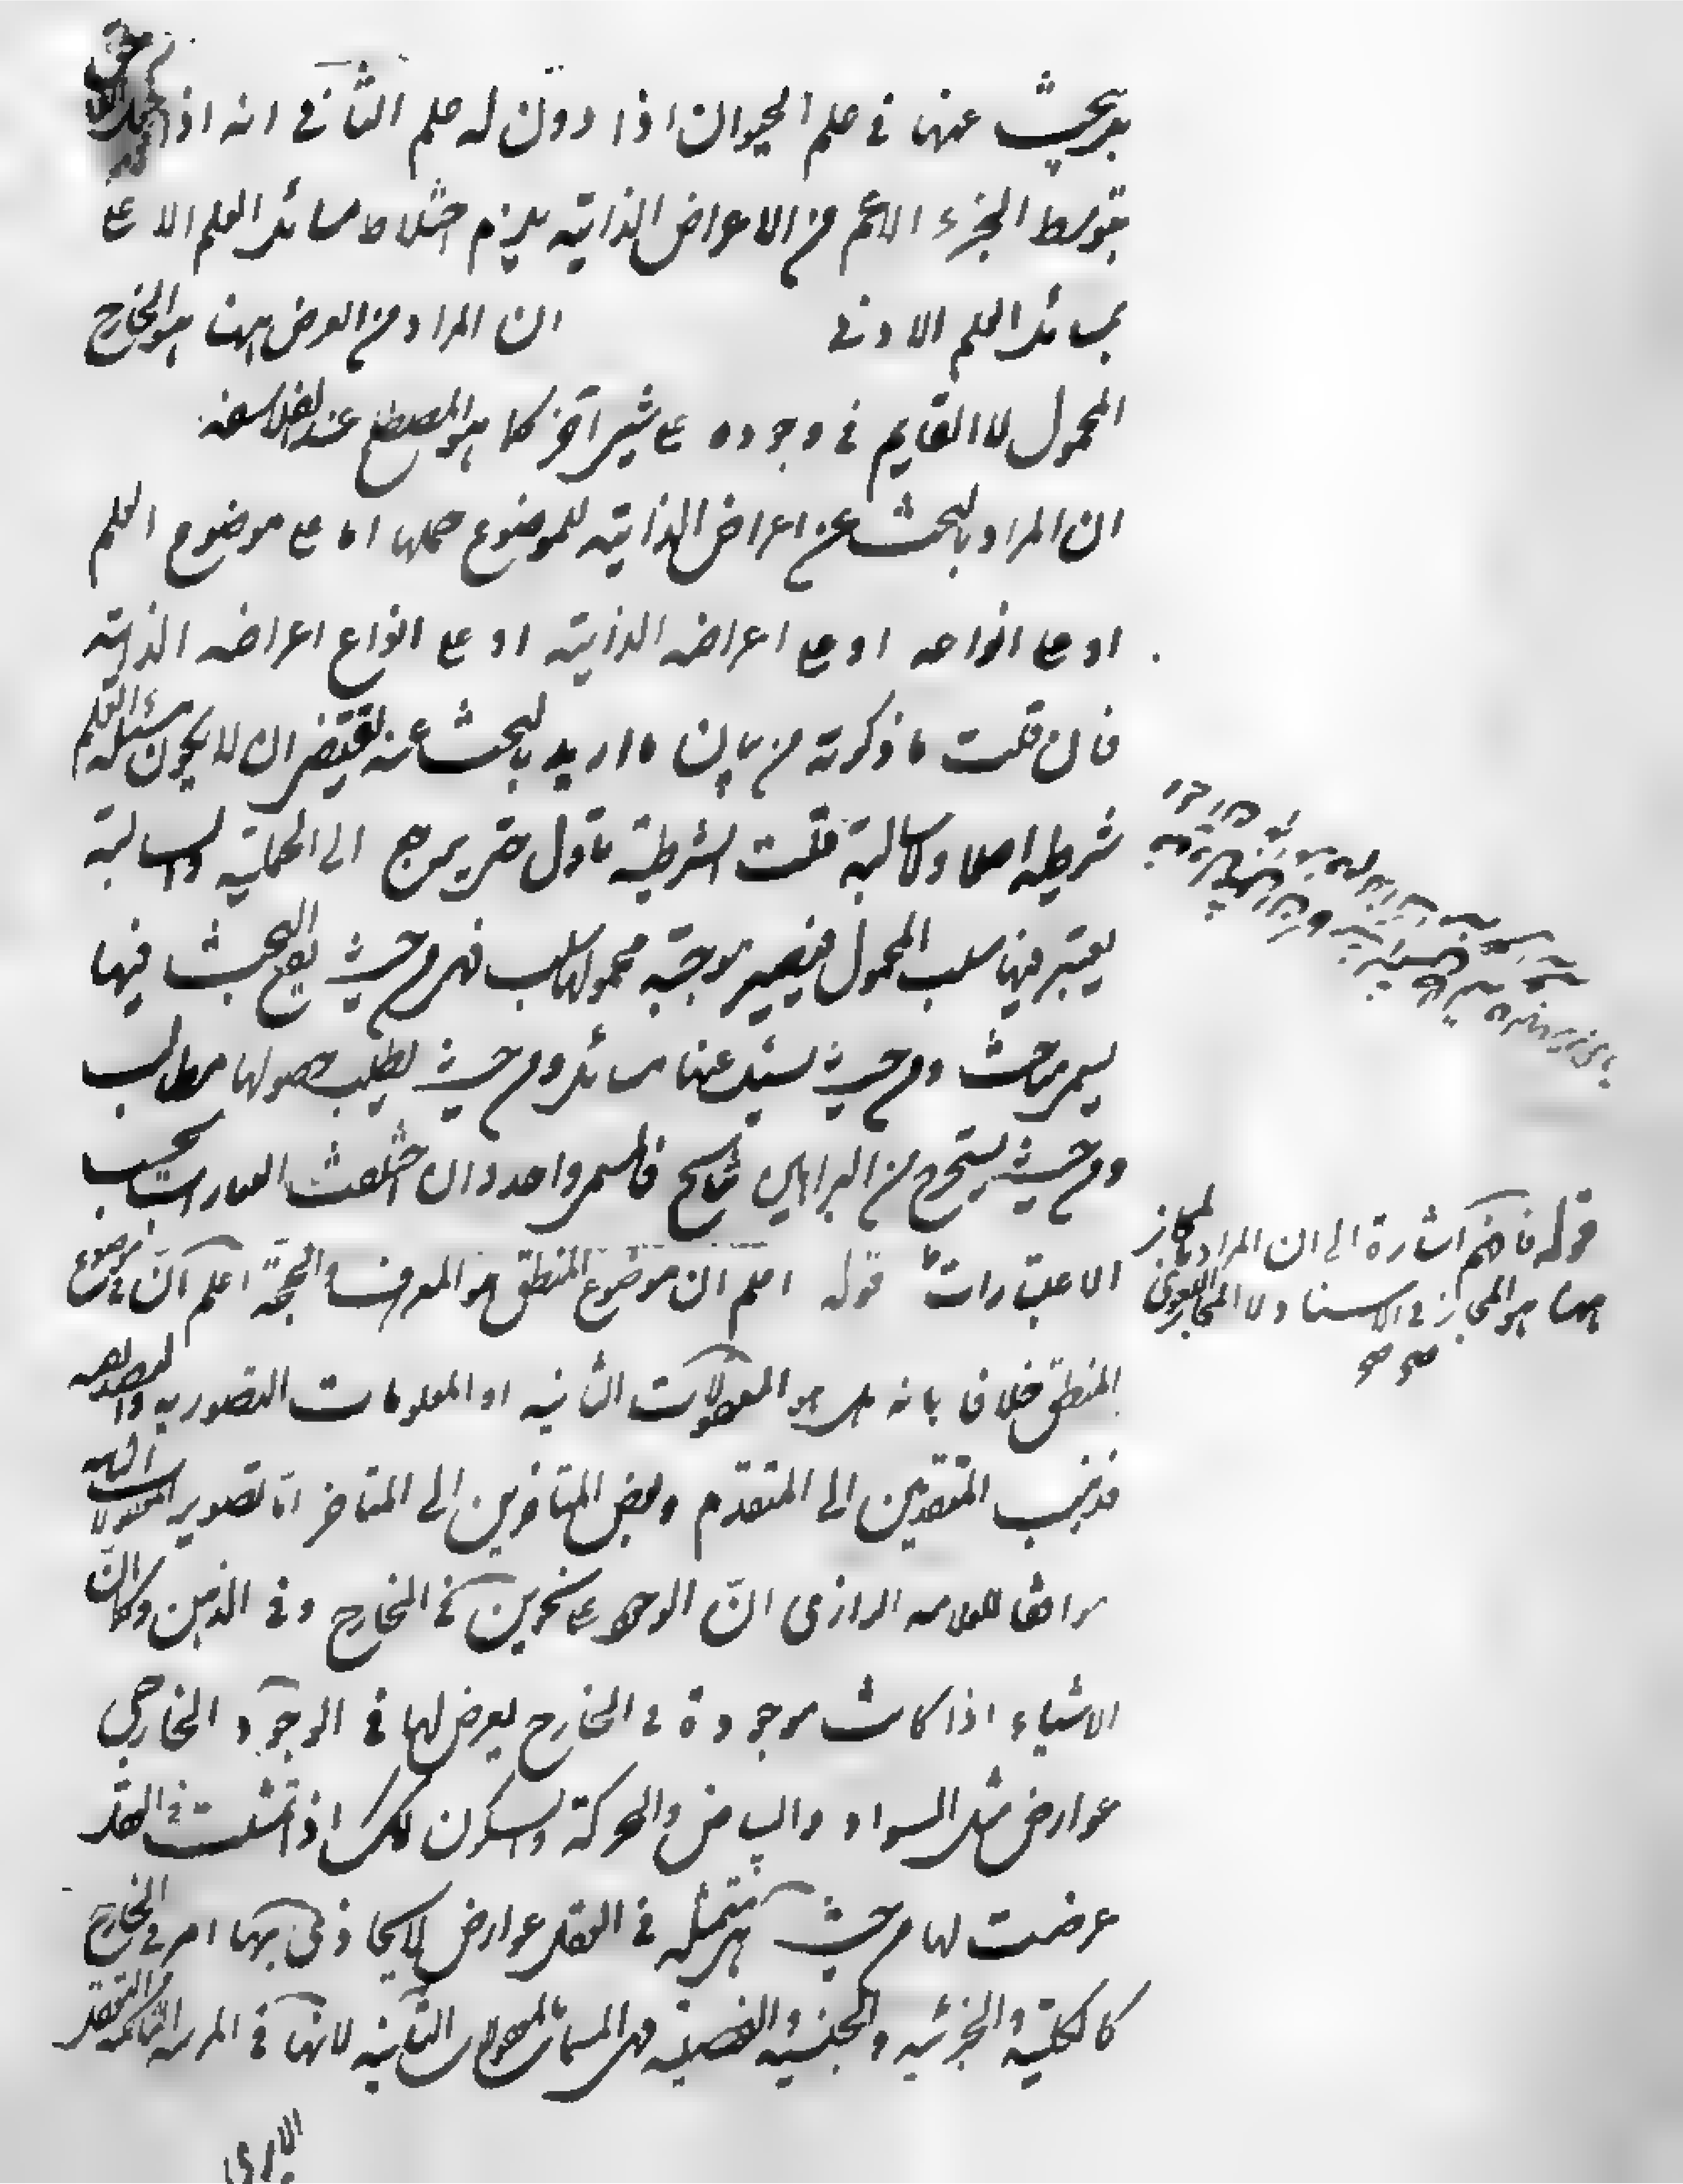 بل يبحث عنها في علم الحيوان اذا دون له علم الثاني انه اذا
بتوسط الجزء الاعم من الاعراض الذاتية يلزم اختلاط مسائل العلم الاعلى
بمسائل العلم الادنى ان المراد من العرض ههنا هو الخارج
المحمول لا القايم في وجوده على شيء آخر كما هو المصطلح عند الفلاسفة
ان المراد بالبحث عن اعراض الذاتية للموضوع حملها اما على موضوع العلم
او على انواعه او على اعراضه الذاتية او على انواع اعراضه الذاتية
فان قلت ما ذكرته من بيان ما اريد بالبحث عنه يقتضي ان لا يكون مسئلة العلم
شرطية اصلا ولا سالبة قلت الشرطية تأول حتى يرجع الى الحملية والسالبة
يعتبر فيها سلب المحمول فيصير موجبة محمولها سلب فهي من حيث يقع البحث فيها
يسمى مباحث ومن حيث يسئل عنها مسائل ومن حيث يطلب حصولها مطالب
ومن حيث يستخرج من البراهين نتائج فالمسمى واحد وان اختلفت العبارات بحسب
الاعتبارات قوله اعلم ان موضوع المنطق هو المعرف والحجة اعلم ان في موضوع
المنطق خلافا بانه هل هو المعقولات الثانيه او المعلومات التصوريه والتصديقيه
فذهب المتقدمين الى المتقدم وبعض المتاخرين الى المتاخر اما تصوير المعقولات الثانيه
موافقا للعلامه الرازي ان الوجود على نحوين في الخارج وفي الذهن وكما ان
الاشياء اذا كانت موجودة في الخارج يعرض لها في الوجود الخارجي
عوارض مثل السواد والبياض والحركة والسكون كذلك اذا تمثلت في العقل
عرضت لها من حيث هي متمثلة في العقل عوارض لا يحاذى بها امر في الخارج
كالكلية والجزئيه والجنسيه والفصليه فهي المسماة بالمعقولات الثانيه لانها في المرتبه الثانيه من التعقل
قوله فافهم اشارة الى ان المراد بالمجاز
ههنا هو المجاز في الاسناد لا المجاز اللغوي